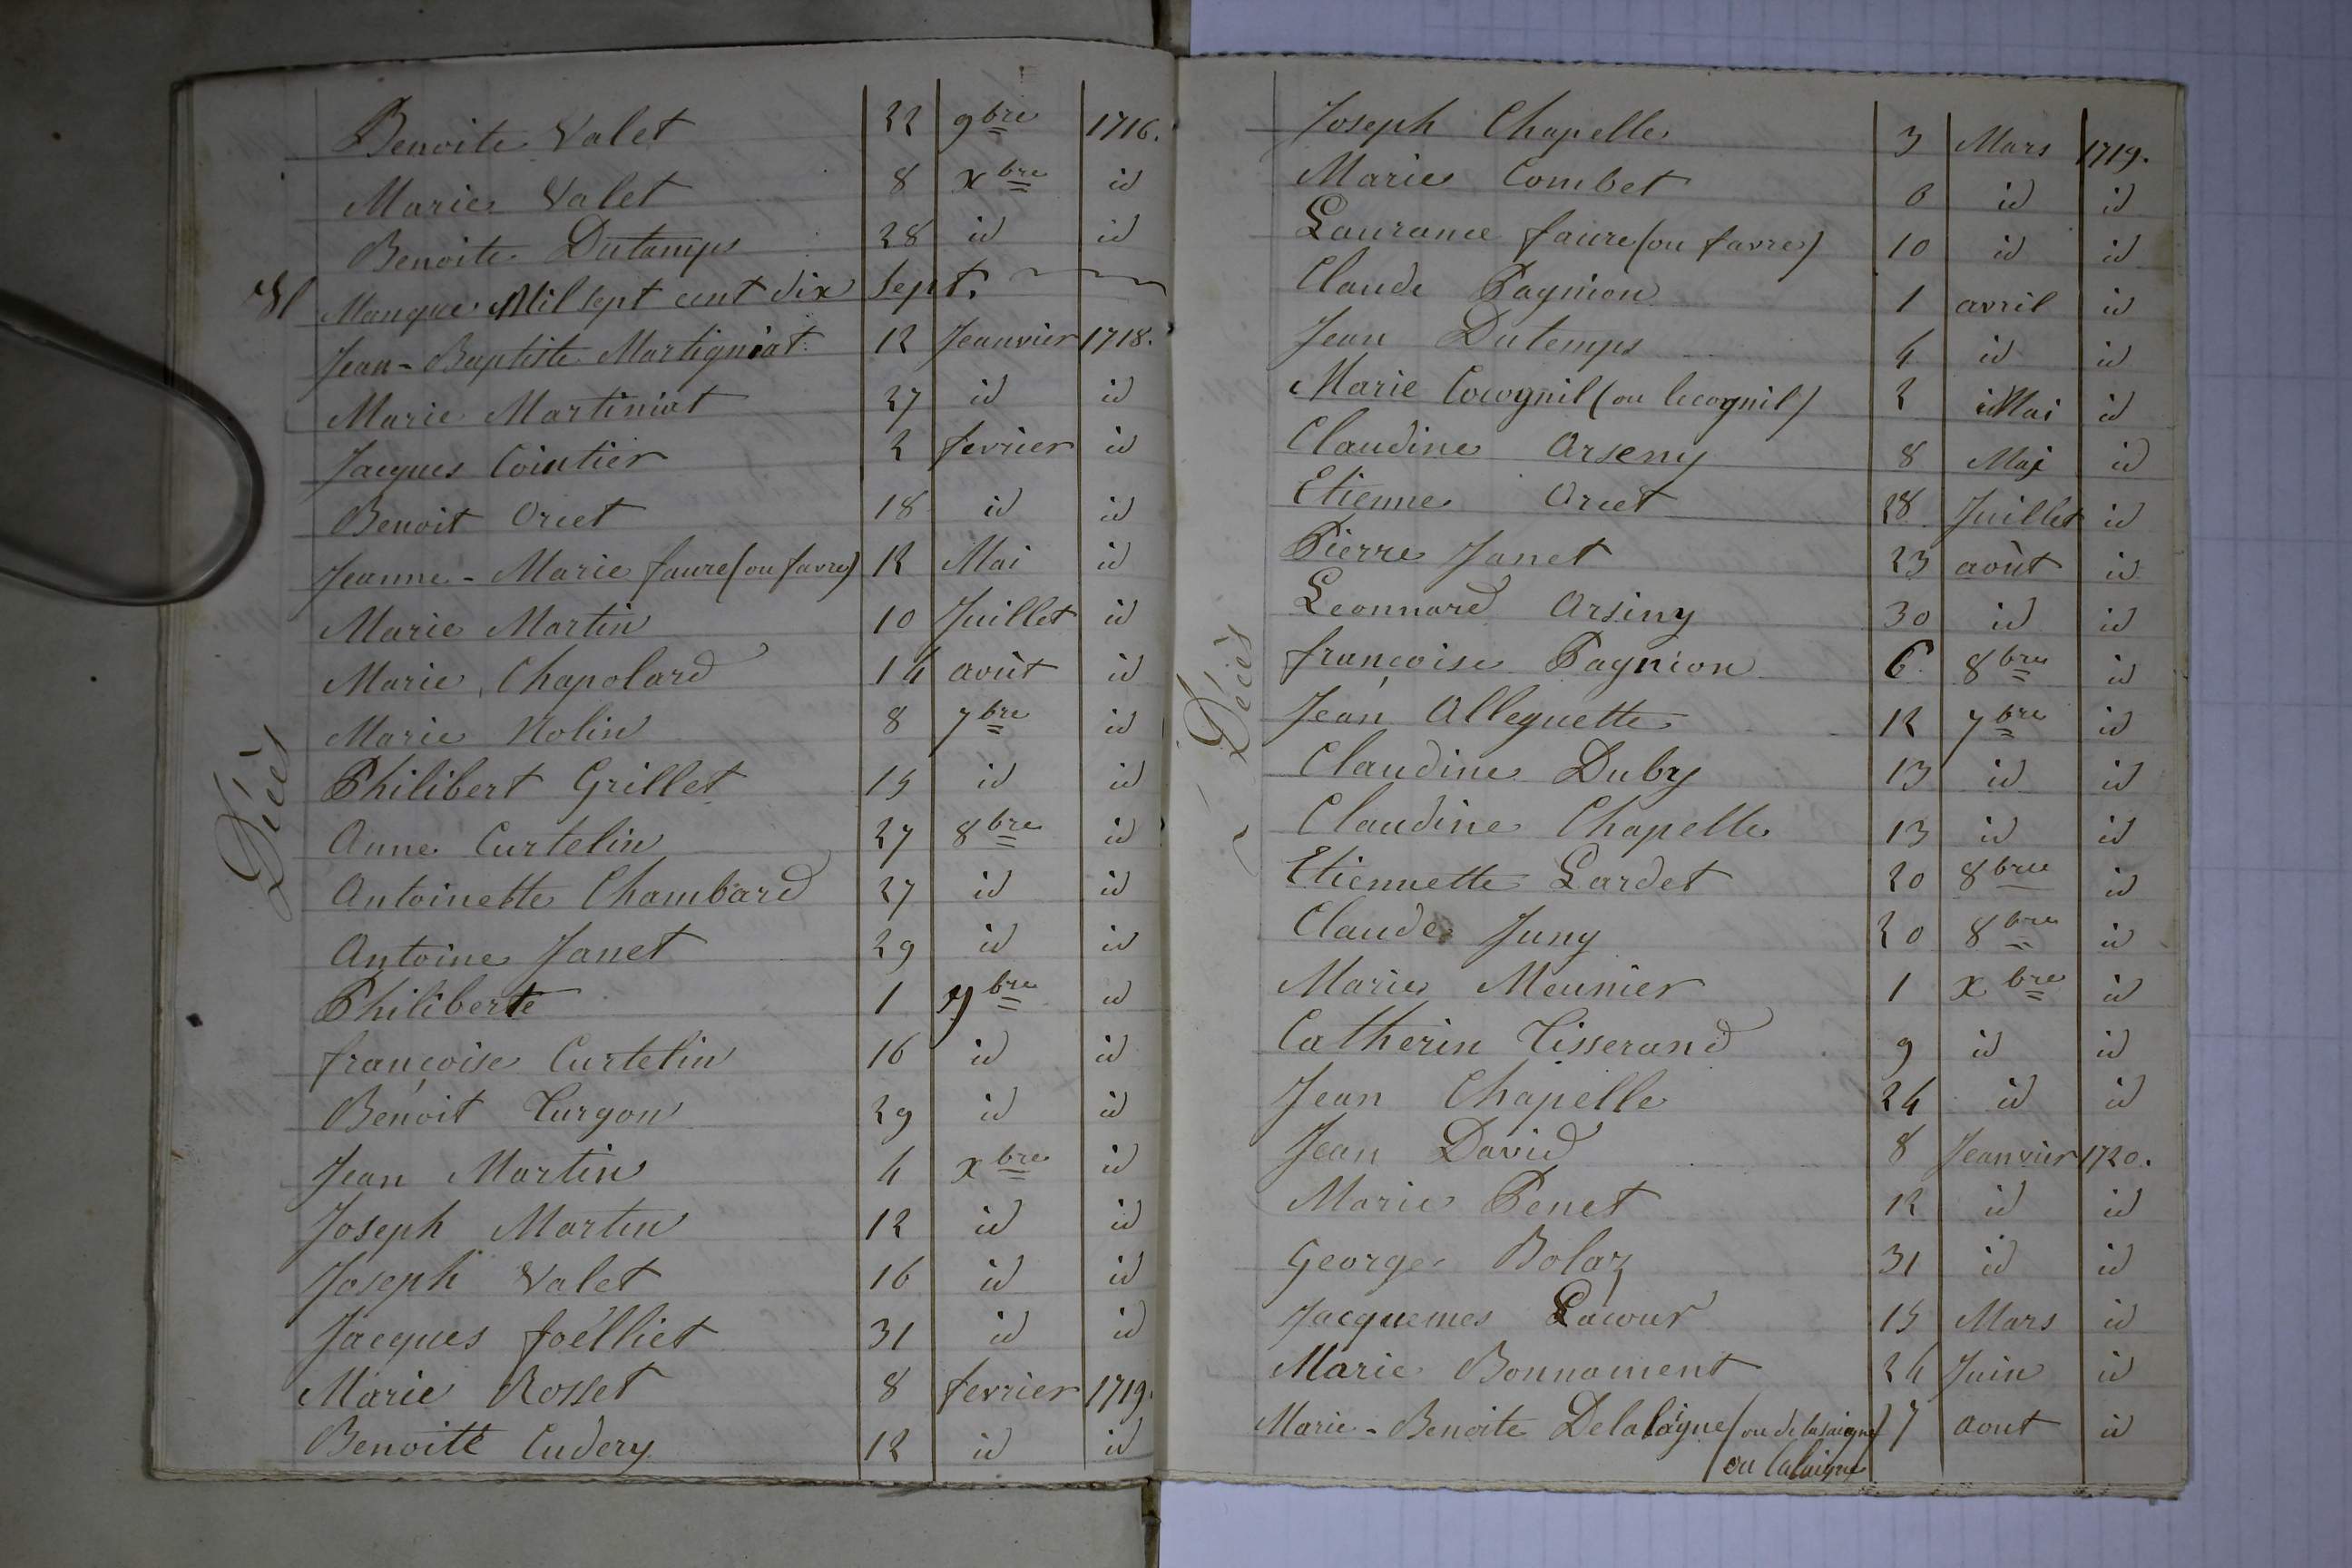 Benoite Valet 22 9bre 1716.
Marie Valet 8 xbre id
Benoite Dutamps 28 id id
Manque Mil sept cent dix sept.
Jean-Baptiste Martigniat 12 Jeanvier 1718.
Marie Martiniat 27 id id
Jacques Cointier 2 fevrier id
Benoit Orcet 18 id id
Jeanne-Marie faure (ou favre) 12 Mai id
Marie Martin 10 Juillet id
Marie Chapolard 14 août id
Marie Nolin 8 7bre id
Philibert Grillet 15 id id
Anne Curtelin 27 8bre id
Antoinette Chambard 27 id id
Antoine Janet 29 id id
Philiberte 1 9bre id
françoise Curtelin 16 id id
Benoit Turgon 29 id id
Jean Martin 4 xbre id
Joseph Martin 12 id id
Joseph Valet 16 id id
Jacques foëlliet 31 id id
Marie Rosset 8 fevrier 1719.
Benoite Cudery 12 id id
Décès
Joseph Chapelle 3 Mars 1719.
Marie Combet 6 id id
Laurance faure (ou favre) 10 id id
Claude Pagnion 1 avril id
Jean Dutemps 4 id id
Marie Cocognil (ou lecognil) 2 Mai id
Claudine Arseny 8 Mai id
Etienne Orcet 28 Juillet id
Pierre Janet 23 août id
Leonnard Arsiny 30 id id
françoise Pagnion 6 8bre id
Jean Alleguette 12 7bre id
Claudine Duby 13 id id
Claudine Chapelle 13 id id
Etiennette Lardet 20 8bre id
Claude Juny 20 8bre id
Marie Meunier 1 xbre id
Catherin Tisserand 9 id id
Jean Chapelle 24 id id
Jean David 8 Jeanvier 1720.
Marie Penet 12 id id
George Bolaz 31 id id
Jacquemes Lacour 15 Mars id
Marie Bonnament 24 Juin id
Marie-Benoite Delalaigne (ou de lasaigne) 7 aout id
ou lalaigne
Décès